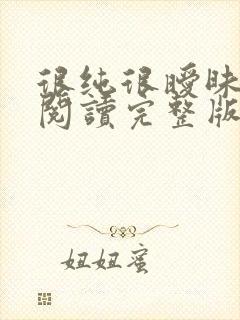 很纯很曖昧
閱讀完整版
妞妞蜜